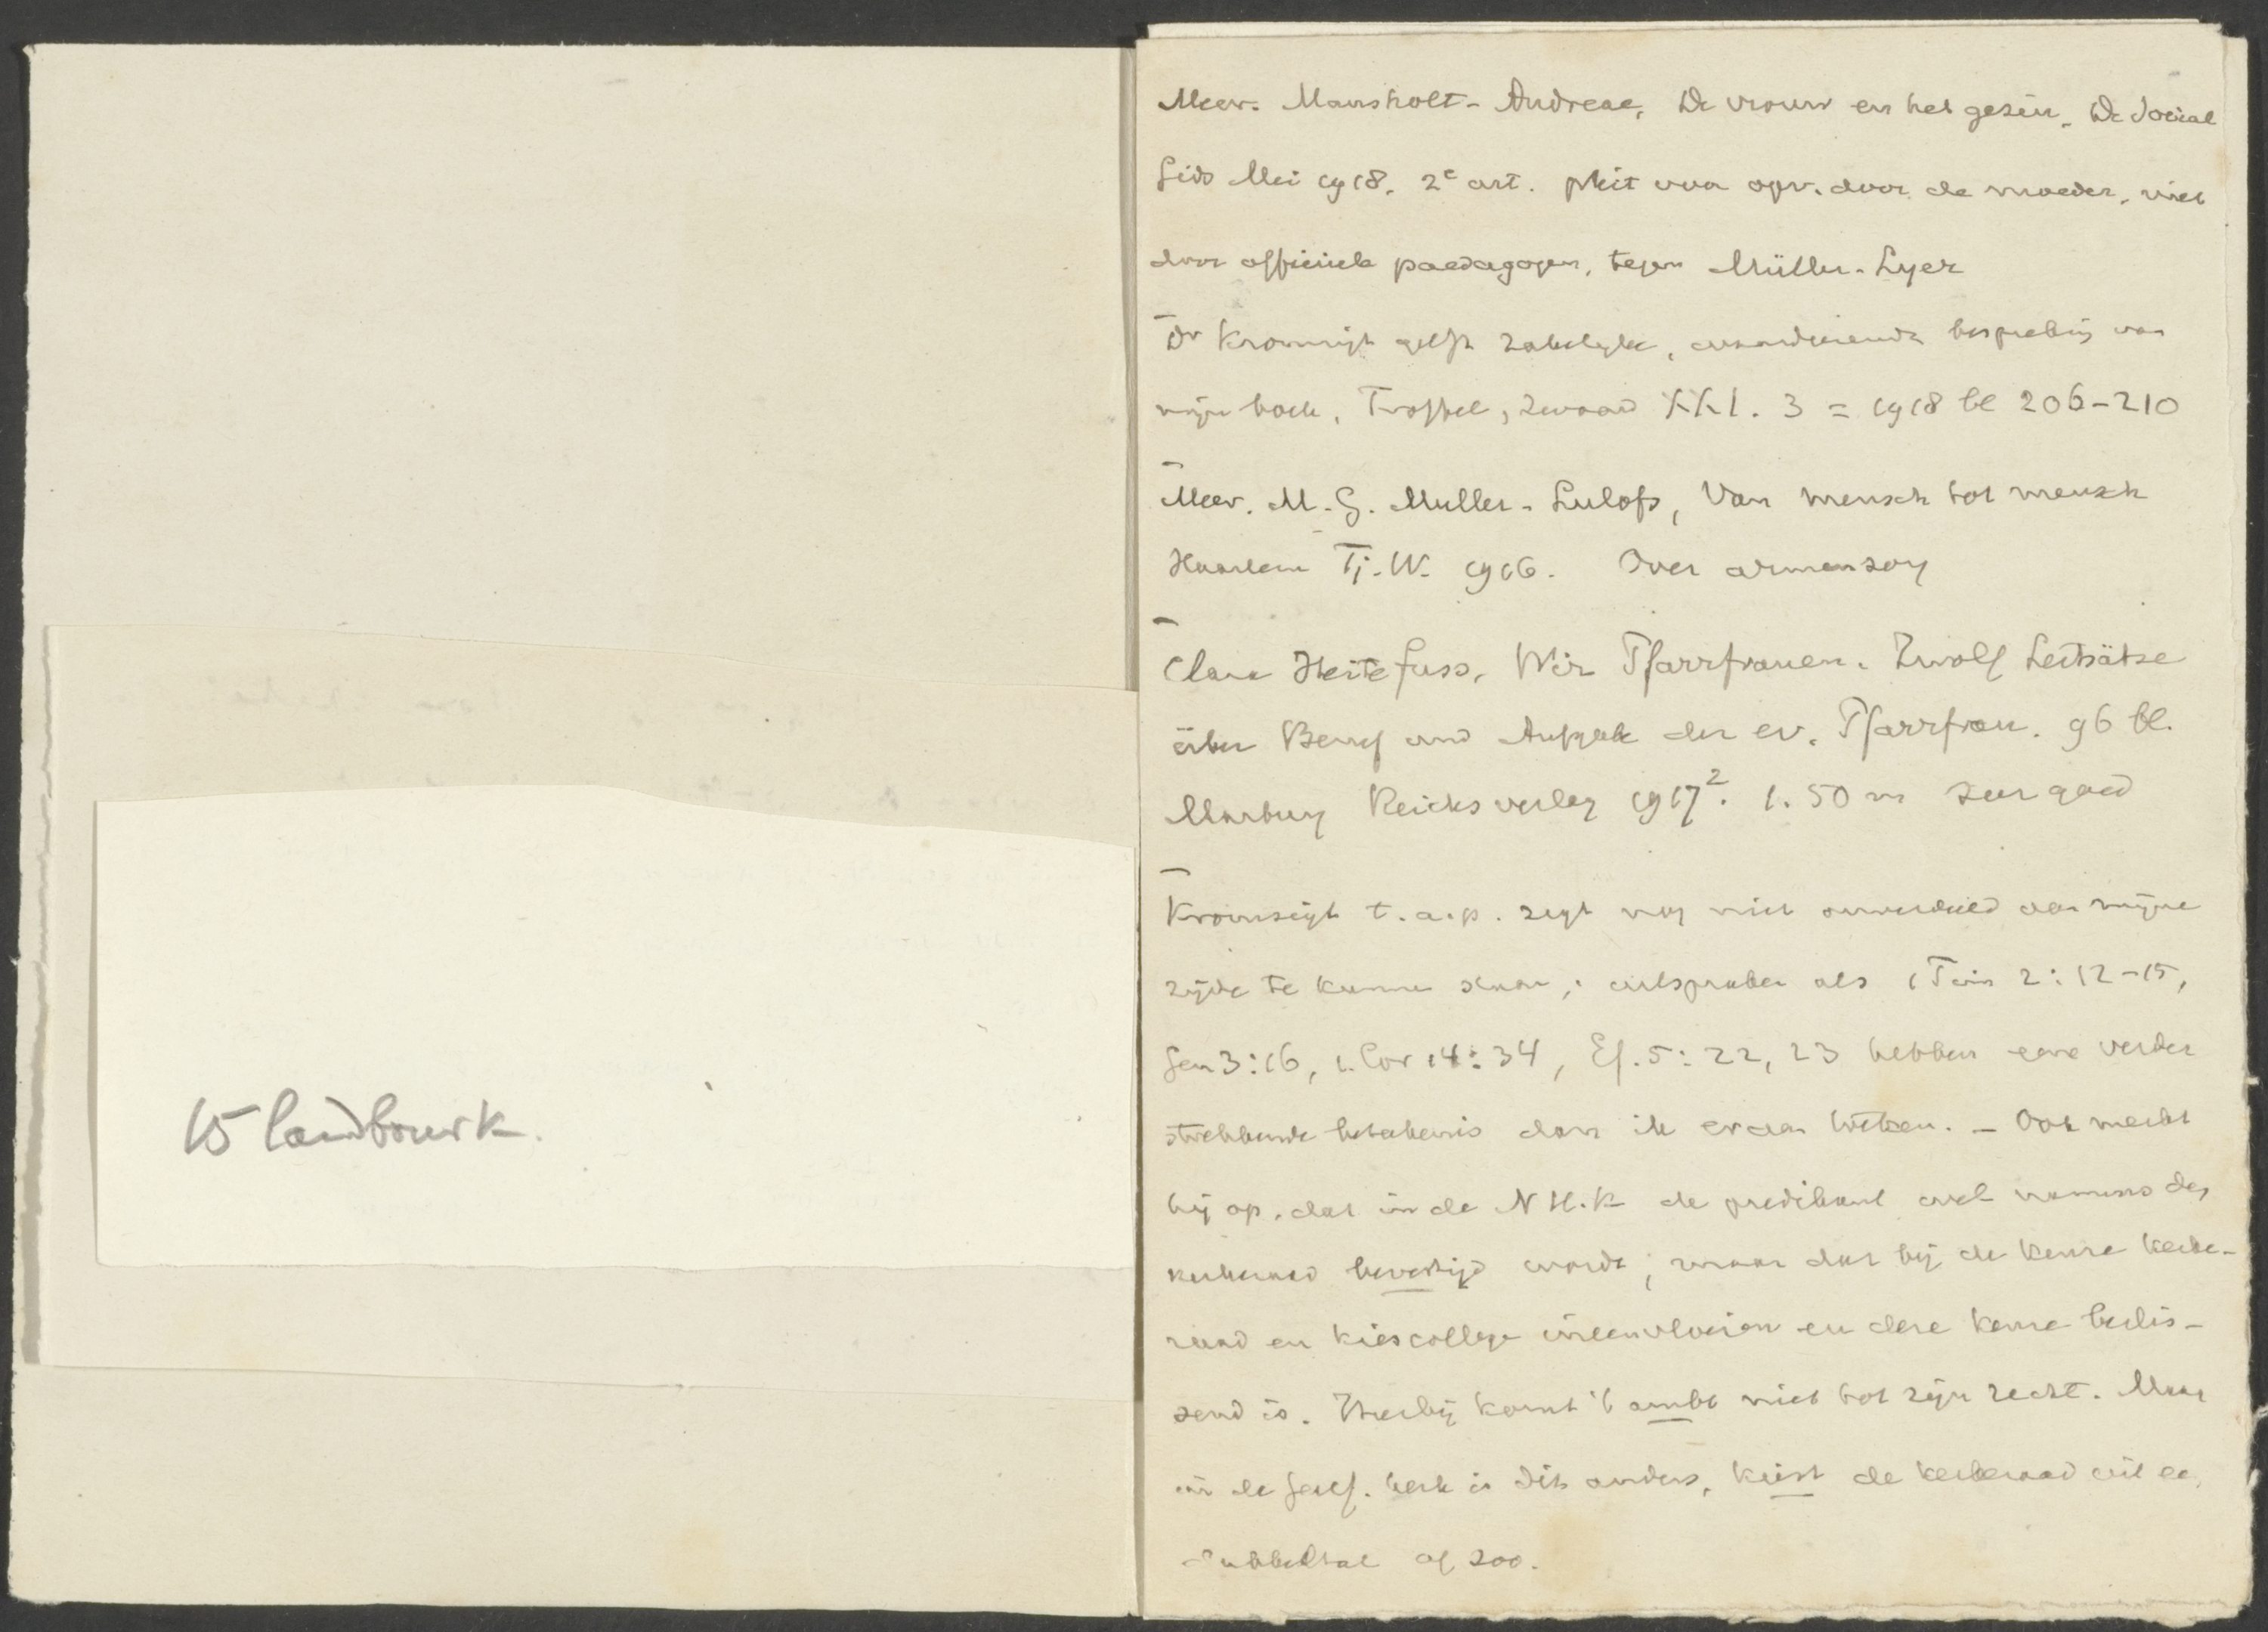 15 landbouwk.
Mevr. Mansholt-Andreae, De vrouw en het gezin, De Social
Gids Mei 1918, 2e art. Pleit voor opv. door de moeder, niet
door officieele paedagogen, tegen Müller-Lyer
Dr Kromsigt geeft zakelyke, waardeerende bespreking van
mijn boek, Troffel, zwaard XXI. 3 = 1918 bl 206-210
Mevr. M.G. Muller-Lulofs, Van mensch tot mensch
Haarlem Tj.W. 1916. Over armenzorg
Clara Heitefuss, Wir Pfarrfrauen. Zwölf Leitsätze
über Beruf und Aufgabe der ev. Pfarrfrau. 96 bl.
Marburg Reichsverlag 1917². 1.50 m zeer goed
Kromsigt t.a.p. zegt nog niet onverdeeld aan mijne
zijde te kunnen staan; uitspraken als 1 Tim 2:12-15,
Gen 3:16, 1 Cor 14:34, Ef. 5:22, 23 hebben eene verder
strekkende beteekenis dan ik eraan hechten. - Ook merkt
hij op, dat in de N H.K de predikant wel namens den
kerkeraad bevestigd wordt, maar dat bij de keuze kerke-
raad en kiescollege ineenvloeien en deze keuze beslis-
send is. Hierbij komt 't ambt niet tot zijn recht. Maar
in de Geref. kerk is dit anders, kiest de kerkeraad uit ee
dubbeltal of zoo.